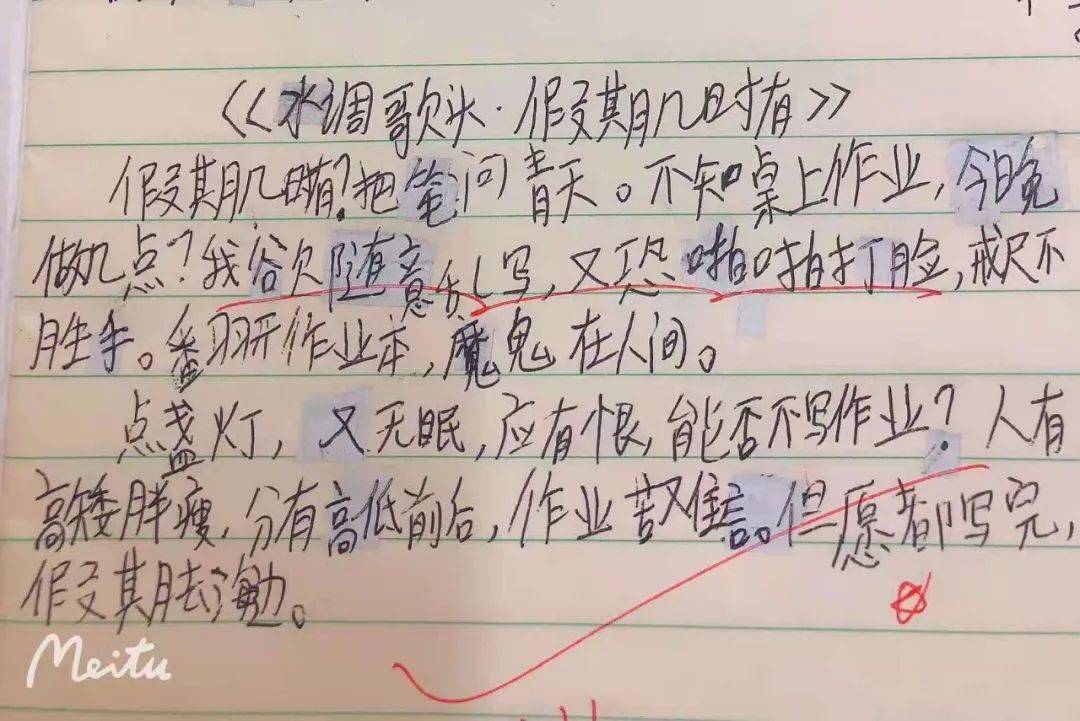 《水调歌头·假期几时有》
假期几时有？把笔问青天。不知桌上作业，今日晚
做几点？我欲随意乱写，又恐啪啪打脸，戒尺不
胜手。翻开作业本，魔鬼在人间。
点盏灯，又无眠，应有恨，能否不写作业？人有
高矮胖瘦，分有高低前后，作业苦难言。但愿都写完，
假期去海边。
Meitu